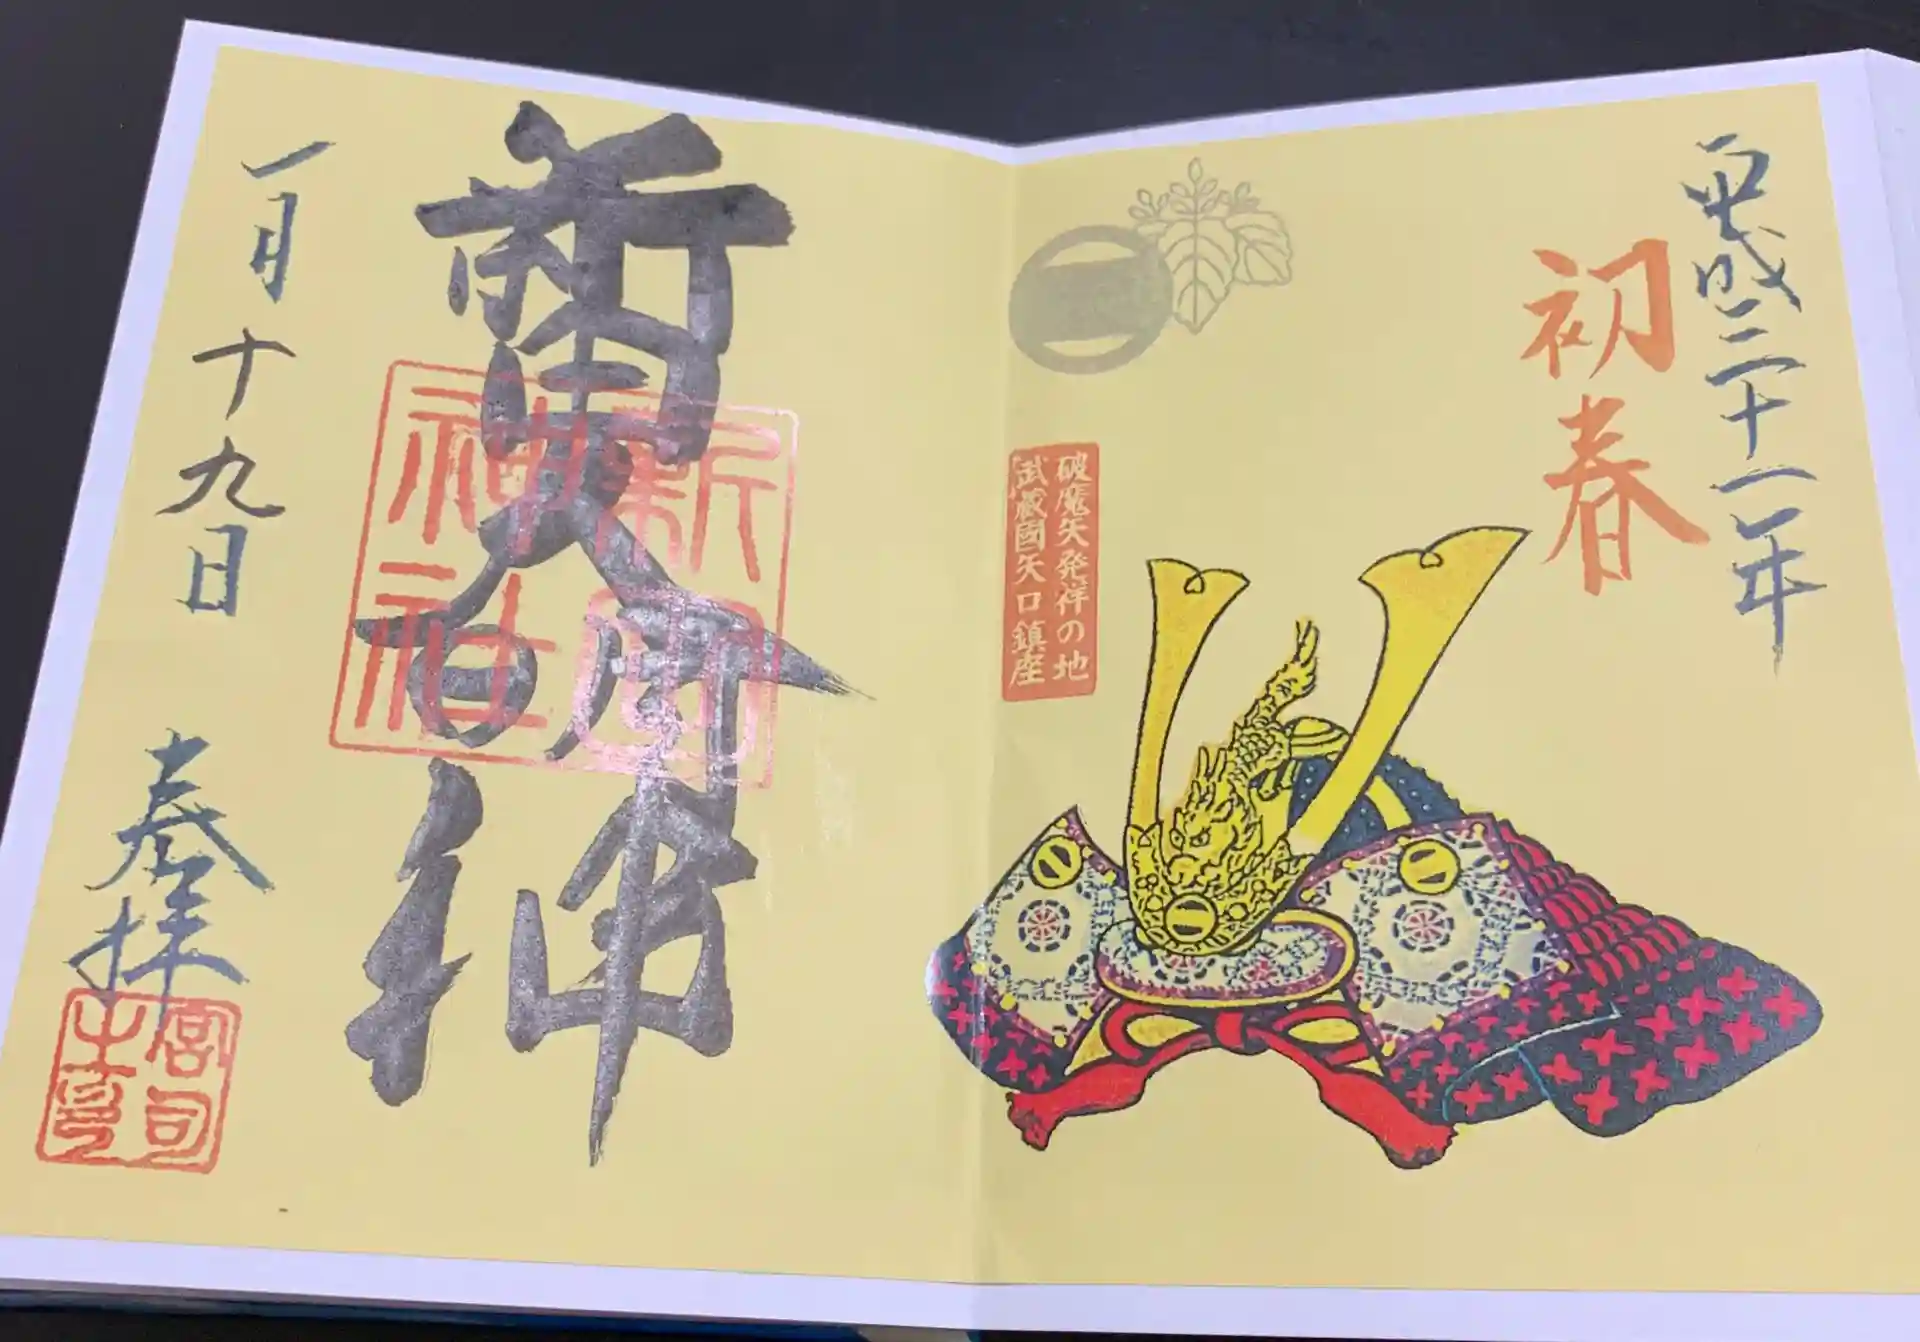 平成三十一年
初春
破魔矢発祥の地
武蔵國矢口鎮座
新田大明神
新田神社
一月十九日 奉拝
宮司之印